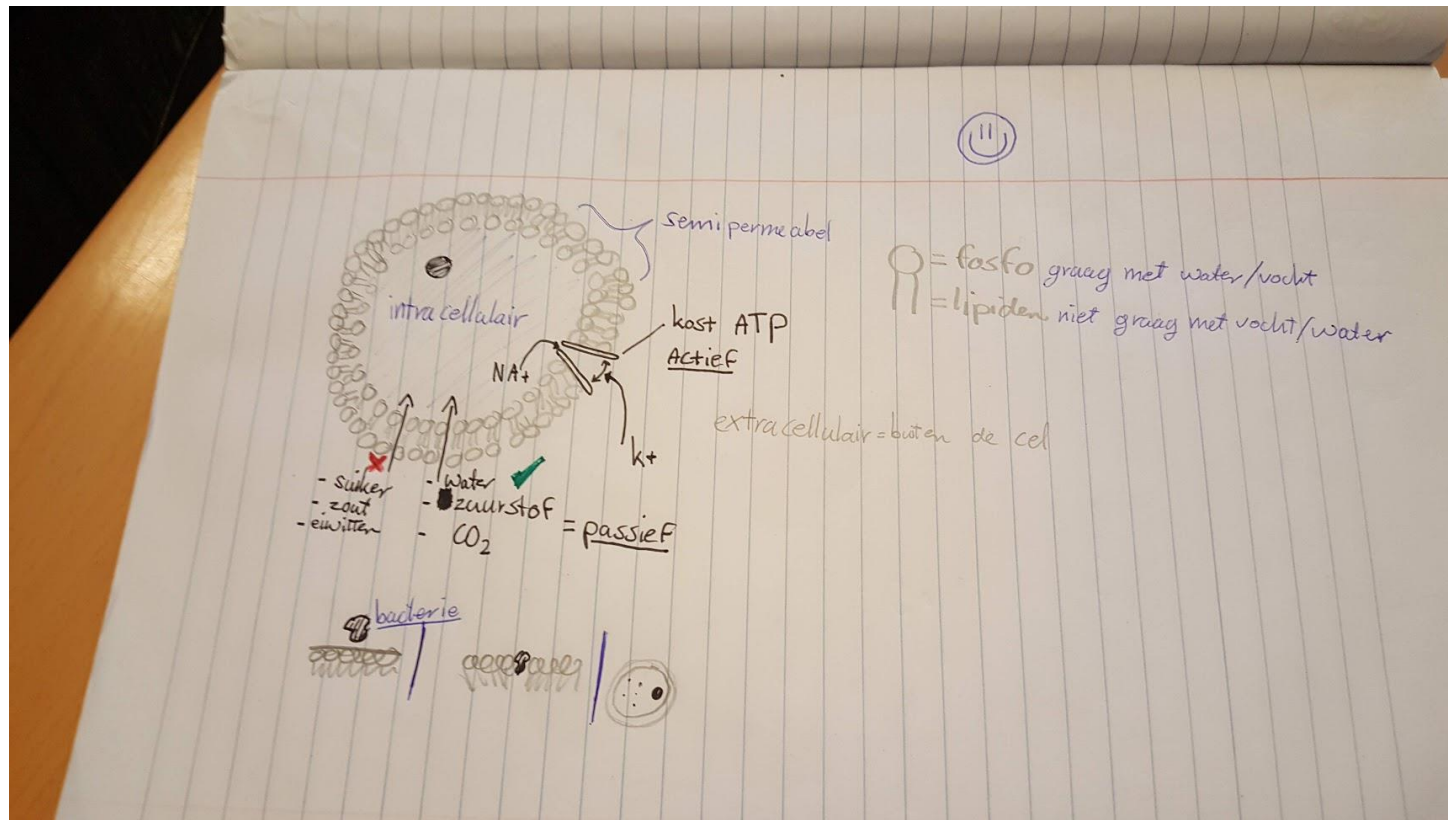 semipermeabel
= fosfo graag met water/vocht
= lipiden niet graag met vocht/water
intracellulair
kost ATP
Actief
NA+
extracellulair = buiten de cel
k+
- suiker
- zout
- eiwitten
- water
- zuurstof
- CO2
= passief
bacterie